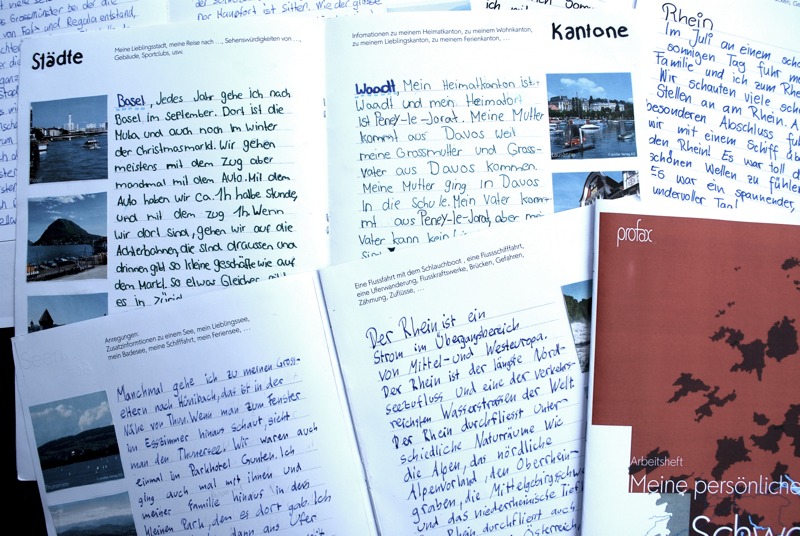 Städte
Meine Lieblingsstadt, meine Reise nach ..., Sehenswürdigkeiten von ...,
Gebäude, Sportclubs, usw.
Basel, Jedes Jahr gehe ich nach
Basel im September. Dort ist die
Muba und auch noch im Winter
der Christmasmarkt. Wir gehen
meistens mit dem Zug aber
manchmal mit dem Auto. Mit dem
Auto haben wir ca. 1h halbe Stunde,
und mit dem Zug 1h. Wenn
wir dort sind, gehen wir auf die
Achterbahnen, die sind draussen und
drinnen gibt so kleine geschäfte wie auf
dem Markt. So etwas Gleiches gibt
es in Zürich
Infomationen zu meinem Heimatkanton, zu meinem Wohnkanton,
zu meinem Lieblingskanton, zu meinem Ferienkanton, ...
Kantone
Waadt, Mein Heimatkanton ist
Waadt und mein Heimatort
ist Peney-le-Jorat. Meine Mutter
kommt aus Davos weil
meine Grossmutter und Gross-
vater aus Davos kommen.
Meine Mutter ging in Davos
In die Schule. Mein Vater kom-
mt aus Peney-le-Jorat, aber mein
Vater kann kein
Rhein
Im Juli an einem
sonnigen Tag fuhr
Familie und ich zum
Wir schauten viele
Stellen an am Rhein.
besonderen Abschluss
wir mit einem Schiff
den Rhein! Es war toll
schönen Wellen zu fühlen
Es war ein spannender,
wundervoller Tag!
Anregungen:
Zusatzinformtionen zu einem See, mein Lieblingssee,
mein Badesee, meine Schifffahrt, mein Feriensee, ...
Manchmal gehe ich zu meinen Gross-
eltern nach Hünibach, das ist in der
Nähe von Thun. Wenn man zum Fenster
im Esszimmer hinaus schaut, sieht
man den Thunersee. Wir waren auch
einmal im Parkhotel Gunten. Ich
ging auch mal mit ihnen und
meiner Familie hinaus in den
kleinen Park, den es dort gab. Ich
dann ans Ufer
Eine Flussfahrt mit dem Schlauchboot , eine Flussschifffahrt,
eine Uferwanderung, Flusskraftswerke, Brücken, Gefahren,
Zähmung, Zuflüsse, ...
Der Rhein ist ein
Strom im Übergangsbereich
von Mittel- und Westeuropa.
Der Rhein ist der längste Nord-
seezufluss und eine der verkehrs-
reichsten Wasserstrassen der Welt
Der Rhein durchfliesst Unter-
schiedliche Naturräume wie
die Alpen, das nördliche
Alpenvorland, den Oberrhein-
graben, die Mittelgebirgsschw
und das niederrheinische Tief
Rhein durchfliesst auch
Österreich,
profax
Arbeitsheft
Meine persönliche
Schw